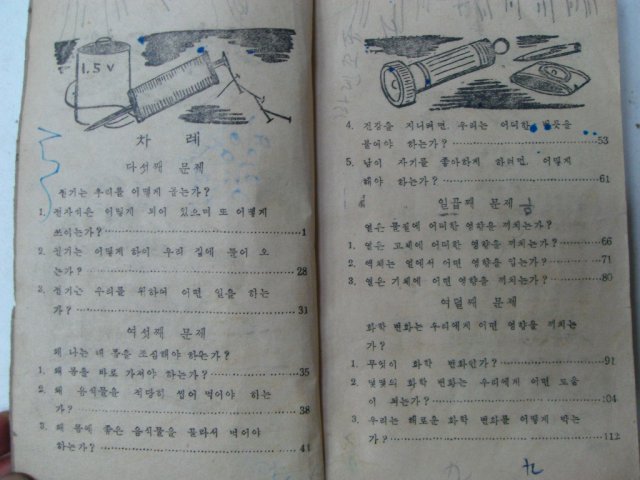 1.5V
차 례
다섯째 문제
전기는 우리를 어떻게 돕는가?
1. 전자석은 어떻게 되어 있으며 또 어떻게
쓰이는가? 1
2. 전기는 어떻게 하여 우리 집에 들어 오
는가? 28
3. 전기는 우리를 위하여 어떤 일을 하는
가? 31
여섯째 문제
왜 나는 내 몸을 조심해야 하는가?
1. 왜 몸을 바로 가져야 하는가? 35
2. 왜 음식물을 적당히 씹어 먹어야 하는
가? 38
3. 왜 몸에 좋은 음식물을 골라서 먹어야
하는가? 41
4. 건강을 지니려면, 우리는 어떠한 버릇을
붙여야 하는가? 53
5. 남이 자기를 좋아하게 하려면, 어떻게
해야 하는가? 61
일곱째 문제
열은 물질에 어떠한 영향을 끼치는가?
1. 열은 고체에 어떠한 영향을 끼치는가? 66
2. 액체는 열에서 어떤 영향을 입는가? 71
3. 열은 기체에 어떤 영향을 끼치는가? 80
여덟째 문제
화학 변화는 우리에게 어떤 영향을 끼치는
가?
1. 무엇이 화학 변화인가? 91
2. 몇몇의 화학 변화는 우리에게 어떤 도움
이 되는가? 104
3. 우리는 해로운 화학 변화를 어떻게 막는
가? 112